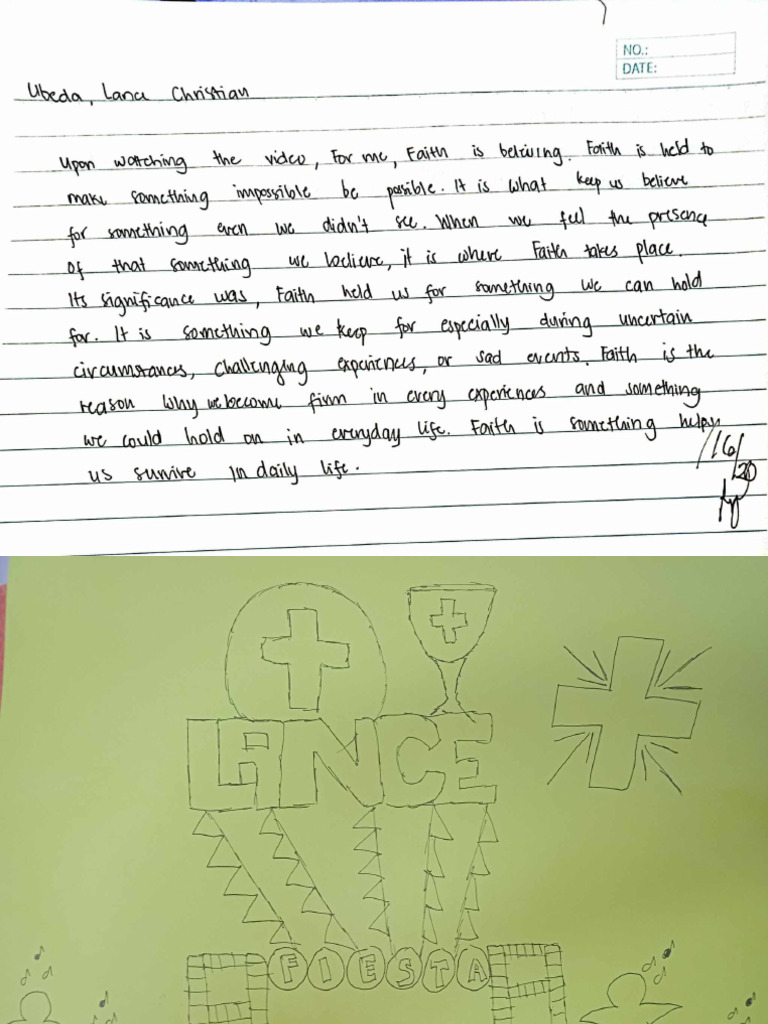 NO.:
DATE:
Ubeda, Lance Christian
Upon watching the video, For me, Faith is believing. Faith is held to
make something impossible be possible. It is what keep us believe
for something even we didn't see. When we feel the presence
of that something we believe, it is where Faith takes place.
Its significance was, Faith held us for something we can hold
for. It is something we keep for especially during uncertain
circumstances, challenging experiences, or sad events. Faith is the
reason why we become firm in every experiences and something
we could hold on in everyday life. Faith is something helps
us survive in daily life.
16/20
LANCE
FIESTA